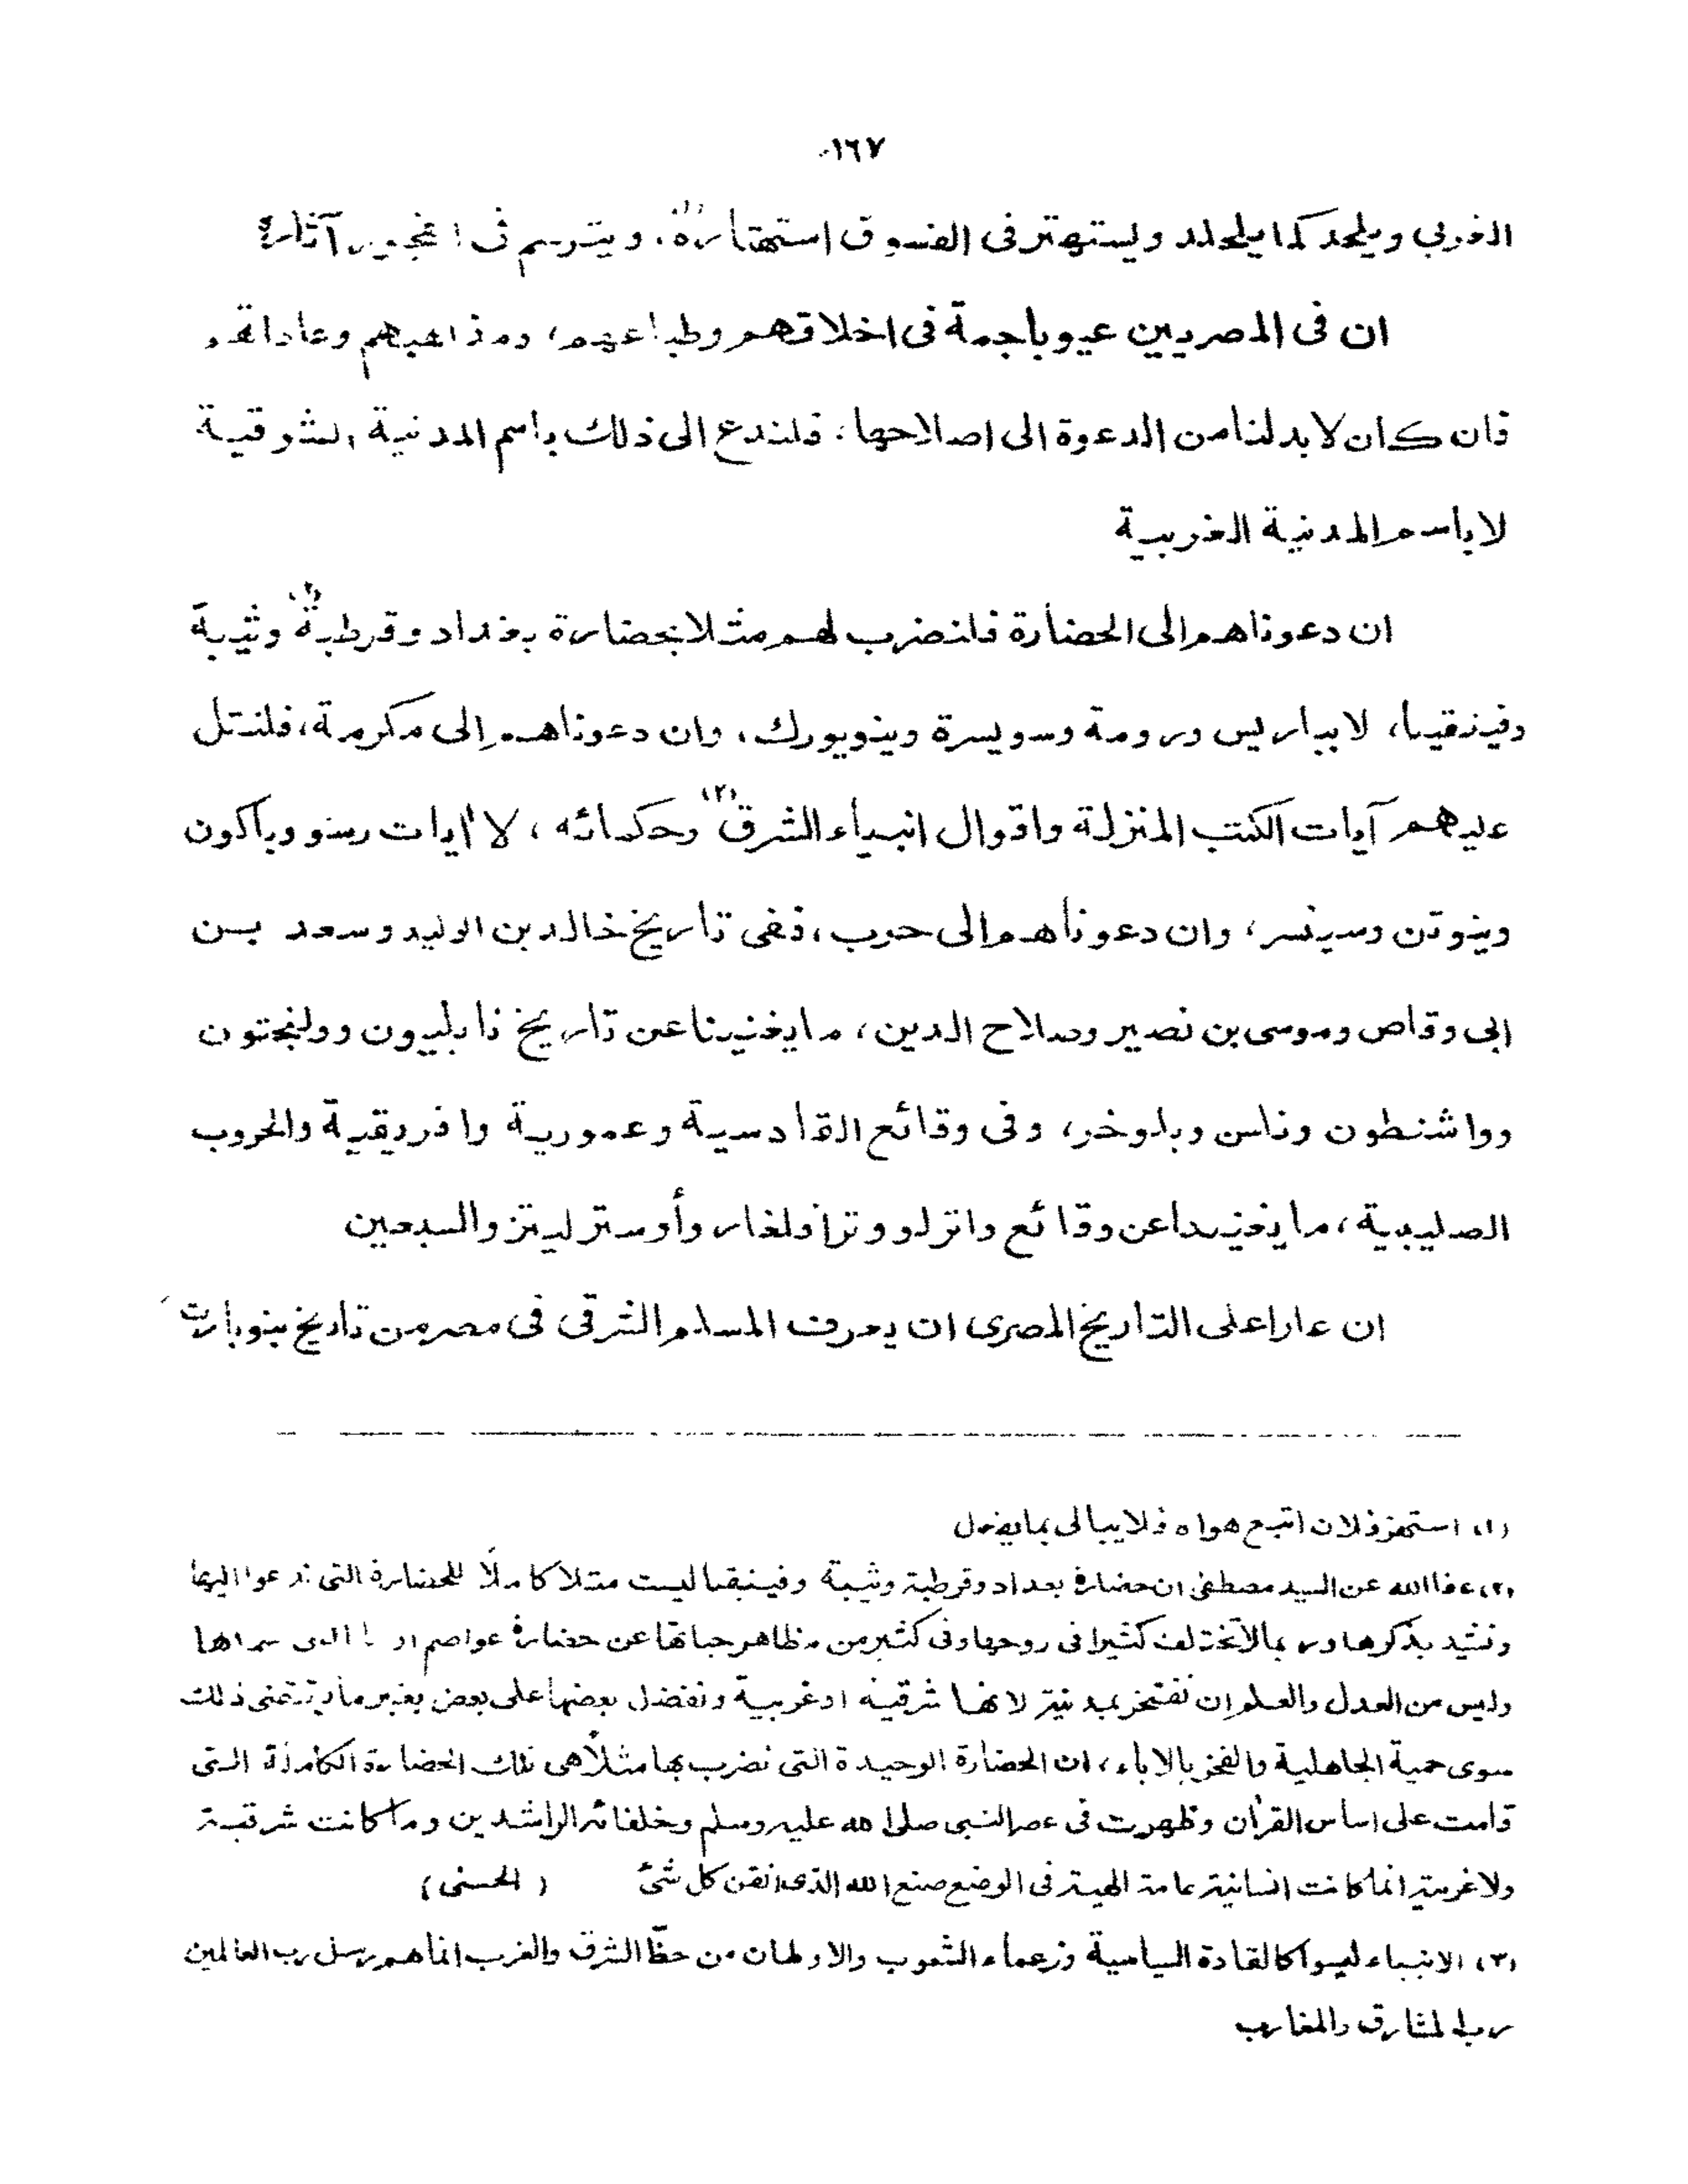 ١٦٧
الغربي ويلحد كما يلحد ويستهتر فى الفسوق استهتاره(١)، ويترسم فى الفجور آثاره
ان فى المصريين عيوبا جمة فى اخلاقهم وطباعهم، ومذاهبهم وعاداتهم
فان كان لا بد لنا من الدعوة الى اصلاحها، فلندع الى ذلك باسم المدنية الشرقية
لا باسم المدنية الغربية
ان دعوناهم الى الحضارة فلنضرب لهم مثلا بحضارة بغداد وقرطبة(٢) وثيبة
وفينقيا، لا بباريس ورومة وسويسرة ونيويورك، وان دعوناهم إلى مكرمة، فلنتل
عليهم آيات الكتب المنزلة واقوال انبياء الشرق(٣) وحكمائه، لا أيات رسو وباكون
ونيوتن وسبنسر، وان دعوناهم الى حرب، ففى تاريخ خالد بن الوليد وسعد بن
ابى وقاص وموسى بن نصير وصلاح الدين، ما يغنينا عن تاريخ نابليون وولنجتون
وواشنطون ونلسن وبلوخر، وفى وقائع القادسية وعمورية وافريقية والحروب
الصليبية، ما يغنينا عن وقائع واترلو وترافلغار وأوسترليتز والسبعين
ان عارا على التاريخ المصرى ان يعرف المسلم الشرقى فى مصر من تاريخ بنوبارت
(١) استهتر فلان اتبع هواه فلا يبالى بما يفعل
(٢) عفا الله عن السيد مصطفى ان حضارة بغداد وقرطبة وثيبة وفينيقيا ليست مثلا كاملًا للحضارة التى ندعوا اليها
ونشيد بذكرها وربما لا تختلف كثيرا فى روحها وفى كثير من مظاهر حياتها عن حضارة عواصم التى سماها
وليس من العدل والعلم ان نفتخر بمدنية لانها شرقية او غربية ونفضل بعضها على بعض بغير ما يقتضى ذلك
سوى حمية الجاهلية والفخر بالاباء، ان الحضارة الوحيدة التى نضرب بها مثلاً هى تلك الحضارة الكاملة التى
قامت على اساس القرأن وظهرت فى عصر النبى صلى الله عليه وسلم وخلفائه الراشدين وما كانت شرقية
ولا غربية انما كانت انسانية عامة الهية فى الوضع صنع الله الذى اتقن كل شئ (الحسنى)
(٣) الانبياء ليسوا كالقادة السياسية وزعماء الشعوب والاوطان من حظّ الشرق والغرب انما هم رسل رب العالمين
رب المشارق والمغارب